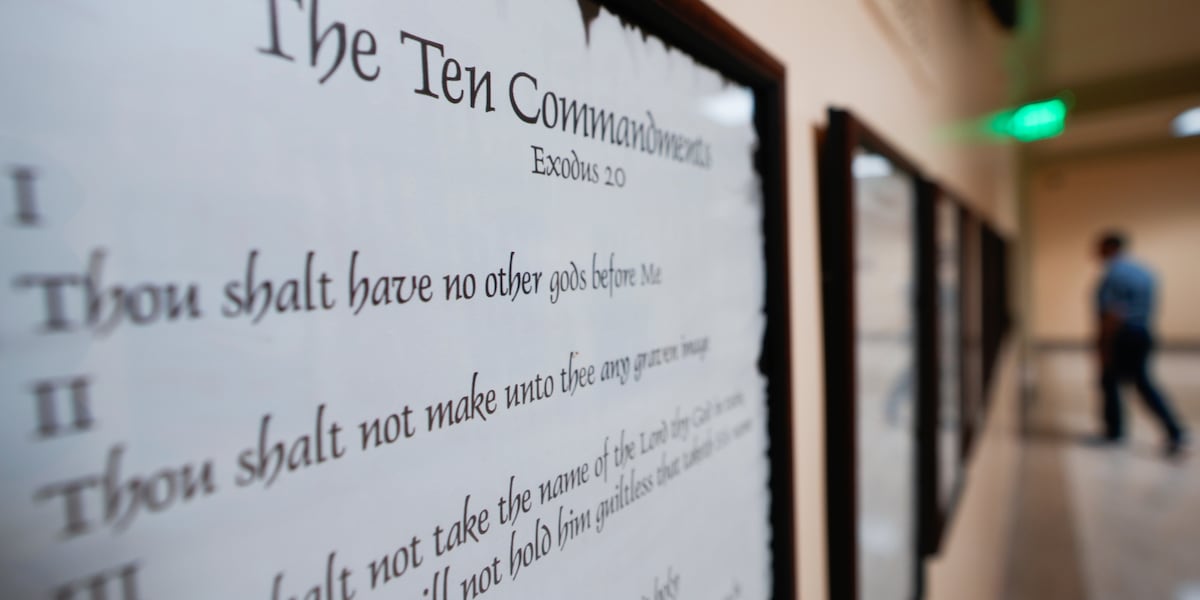 The Ten Commandments
Exodus 20
I
Thou shalt have no other gods before Me
II
Thou shalt not make unto thee any graven image
III
shalt not take the name of the Lord thy God in vain,
will not hold him guiltless that taketh His name
holy